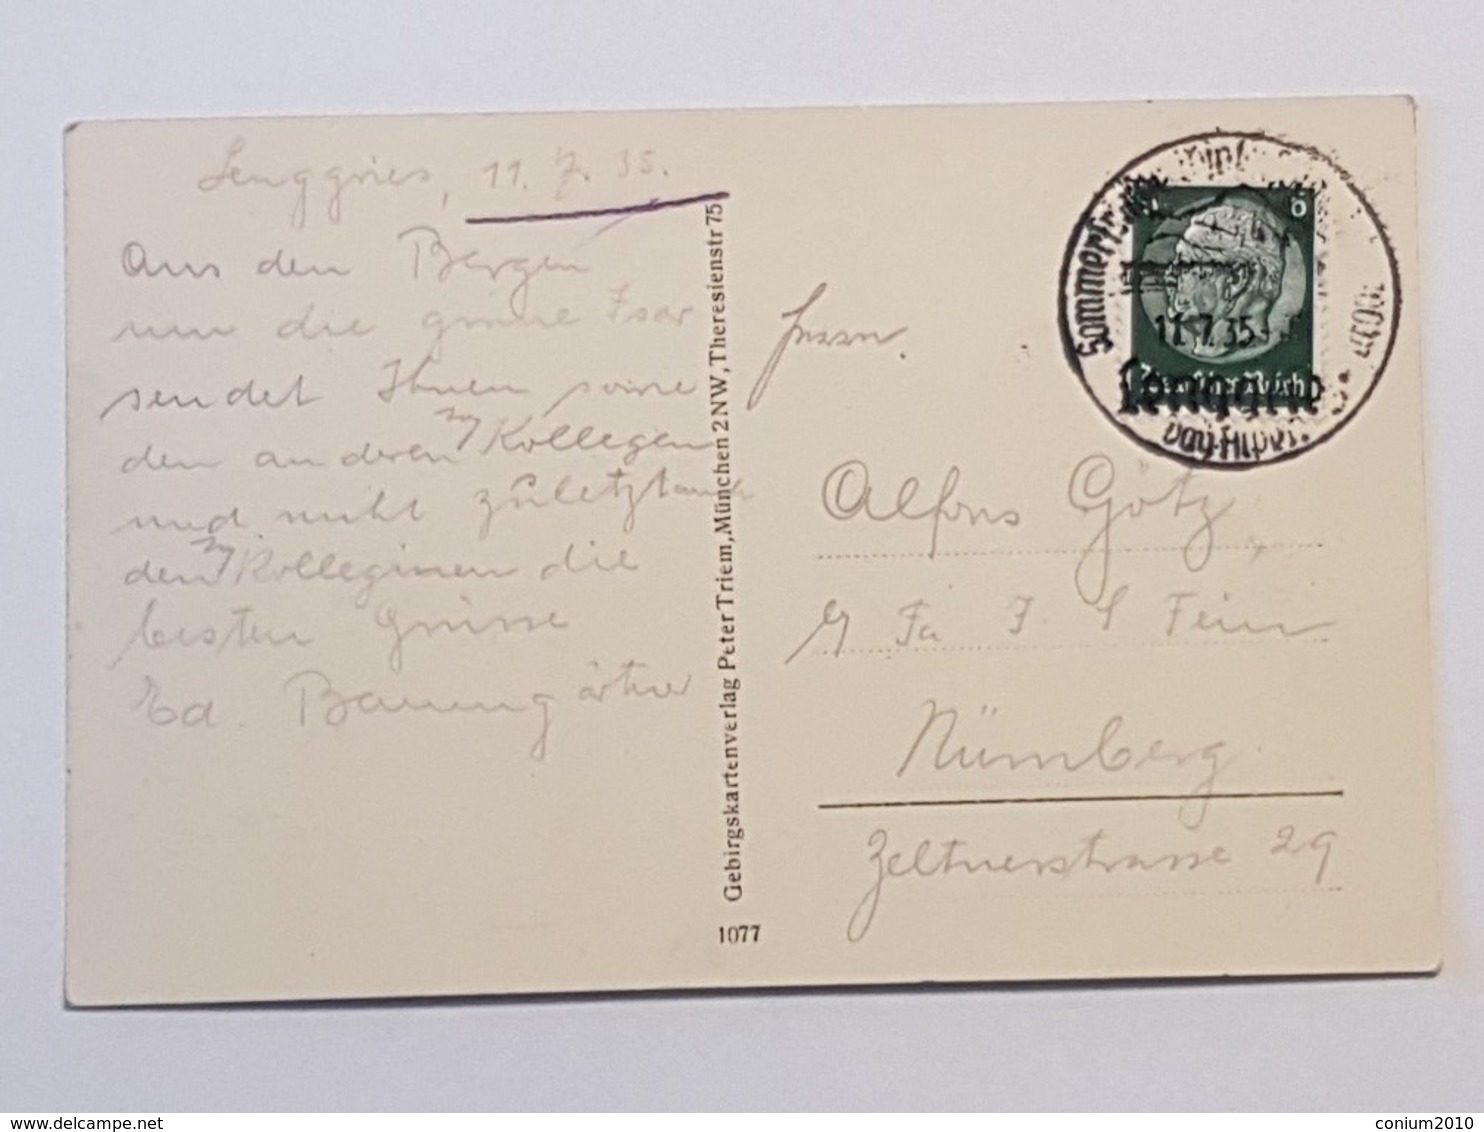 Lenggries, 11.7.35.
Aus den Bergen
um die grüne Isar
sendet Ihnen sowie
den anderen Kollegen
und nicht zuletzt auch
den Kolleginen die
besten Grüsse
Ed. Baumgärtner
Gebirgskartenverlag Peter Triem, München 2 NW, Theresienstr 75
1077
6
11.7.35
Deutsches Reich
Lenggries
bay. Alpen
Herrn
Alfons Götz
Fa
Nürnberg
Zeltnerstrasse 29
delcampe.net
conium2010